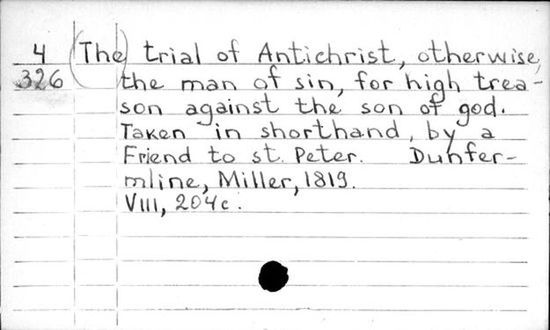 4 (The) trial of Antichrist, otherwise,
326 the man of sin, for high trea-
son against the son of god.
Taken in shorthand, by a
Friend to st. Peter. Dunfer-
mline, Miller, 1819.
VIII, 204c.